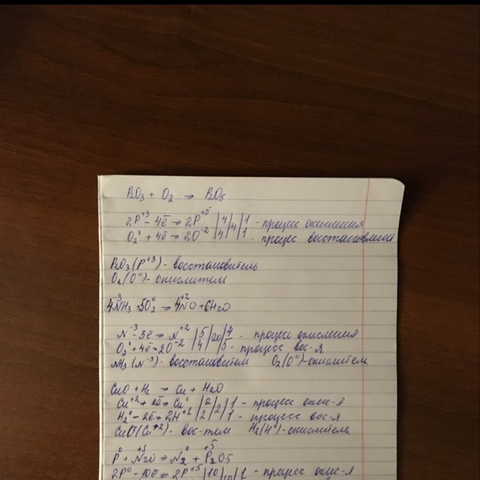 P₂O₃ + O₂ → P₂O₅
2P⁺³ - 4ē → 2P⁺⁵ | 4 | 4 | 1 - процес окисления
O₂⁰ + 4ē → 2O⁻² | 4 | 1 - процес восстановления
P₂O₃(P⁺³) - восстановитель
O₂(O⁰) - окислитель
4NH₃ + 5O₂ → 4NO + 6H₂O
N⁻³ - 5ē → N⁺² | 5 | 20 | 4 - процесс окисления
O₂⁰ + 4ē → 2O⁻² | 4 | 5 - процесс вос-я
NH₃ (N⁻³) - восстановитель O₂(O⁰) - окислитель
CuO + H₂ → Cu + H₂O
Cu⁺² + 2ē → Cu⁰ | 2 | 2 | 1 - процесс окис-я
H₂⁰ - 2ē → 2H⁺¹ | 2 | 1 - процесс вос-я
CuO (Cu⁺²) - вос-тель H₂(H⁰) - окислитель
P⁰ + N₂O → N₂⁰ + P₂O₅
2P⁰ - 10ē → 2P⁺⁵ | 10 | 10 | 1 - процесс окис-я